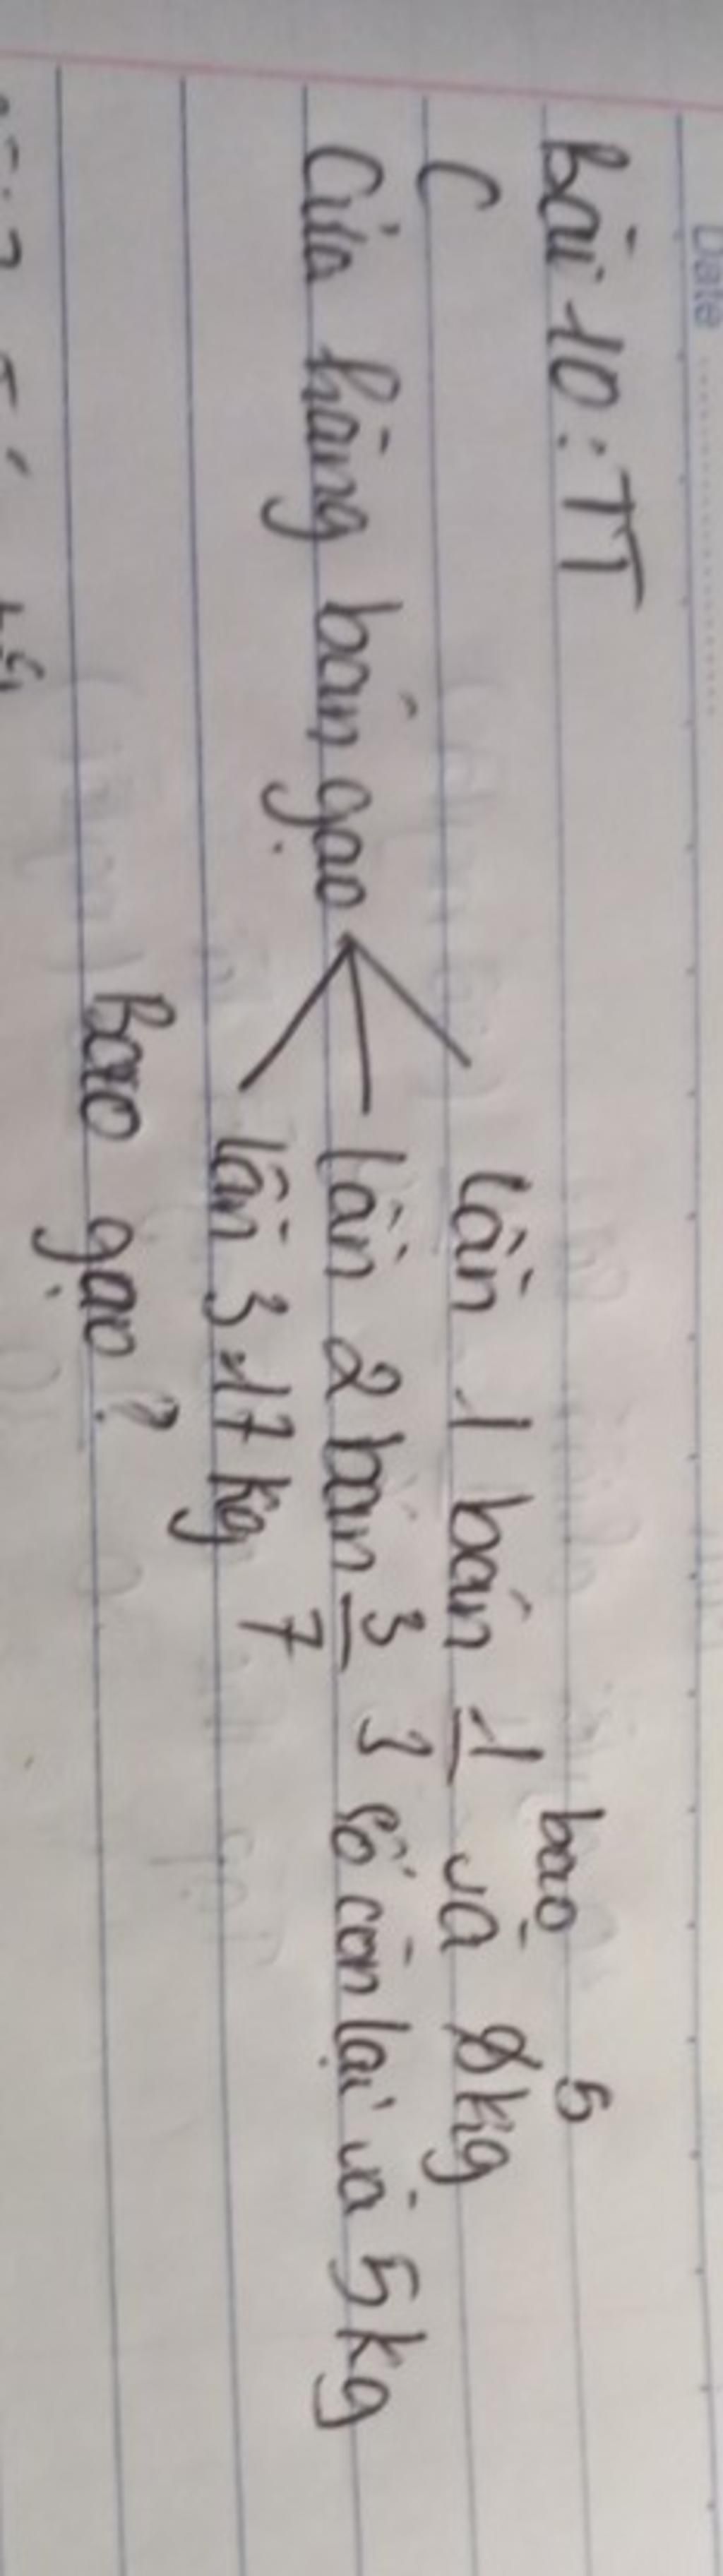 Date
bài 10: TT
C
bao 5
lần 1 bán 1/3 và 8kg
Cửa hàng bán gạo lần 2 bán 3/7 số còn lại và 5kg
lần 3 17kg
Bao gạo?